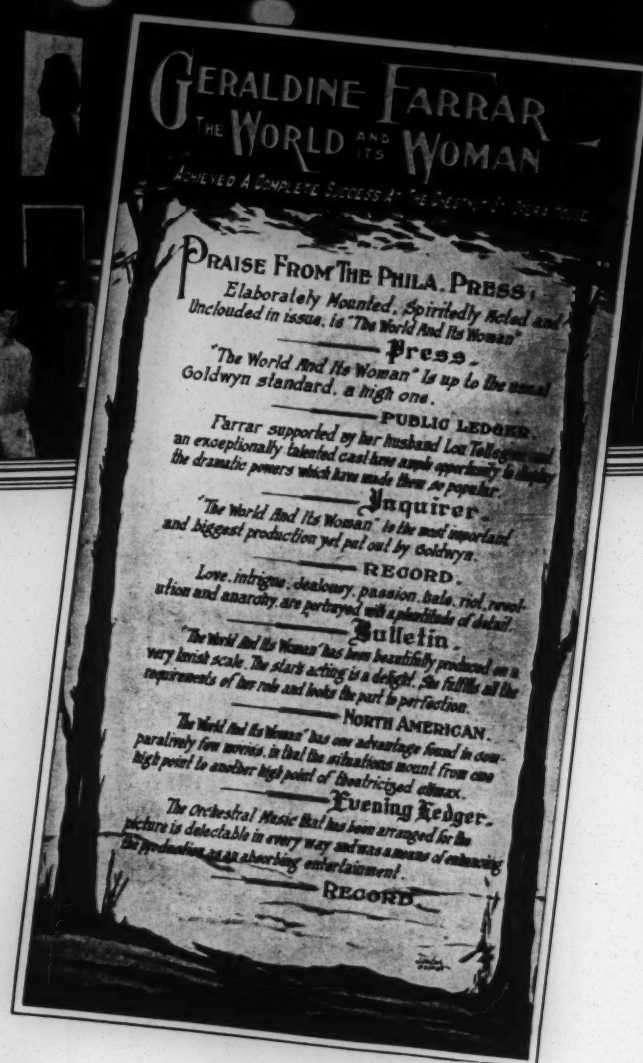 GERALDINE FARRAR
THE WORLD AND ITS WOMAN
ACHIEVED A COMPLETE SUCCESS AT THE CHESTNUT ST. OPERA HOUSE
PRAISE FROM THE PHILA. PRESS:
Elaborately Mounted, Spiritedly Acted and
Unclouded in issue, is "The World And Its Woman"
Press.
"The World And Its Woman" Is up to the usual
Goldwyn standard, a high one.
PUBLIC LEDGER.
Farrar supported by her husband Lou Tellegen and
an exceptionally talented cast have ample opportunity to display
the dramatic powers which have made them so popular.
Inquirer.
"The World And Its Woman" is the most important
and biggest production yet put out by Goldwyn.
RECORD.
Love, intrigue, jealousy, passion, hate, riot, revol-
ution and anarchy, are portrayed with a plentitude of detail.
Bulletin.
"The World And Its Woman" has been beautifully produced on a
very lavish scale. The stars acting is a delight. She fulfills all the
requirements of her role and looks the part to perfection.
NORTH AMERICAN.
"The World And Its Woman" has one advantage found in com-
paratively few movies, in that the situations mount from one
high point to another high point of theatricized climax.
Evening Ledger.
The Orchestral Music that has been arranged for the
picture is delectable in every way and was a means of enhancing
the production as an absorbing entertainment.
RECORD.